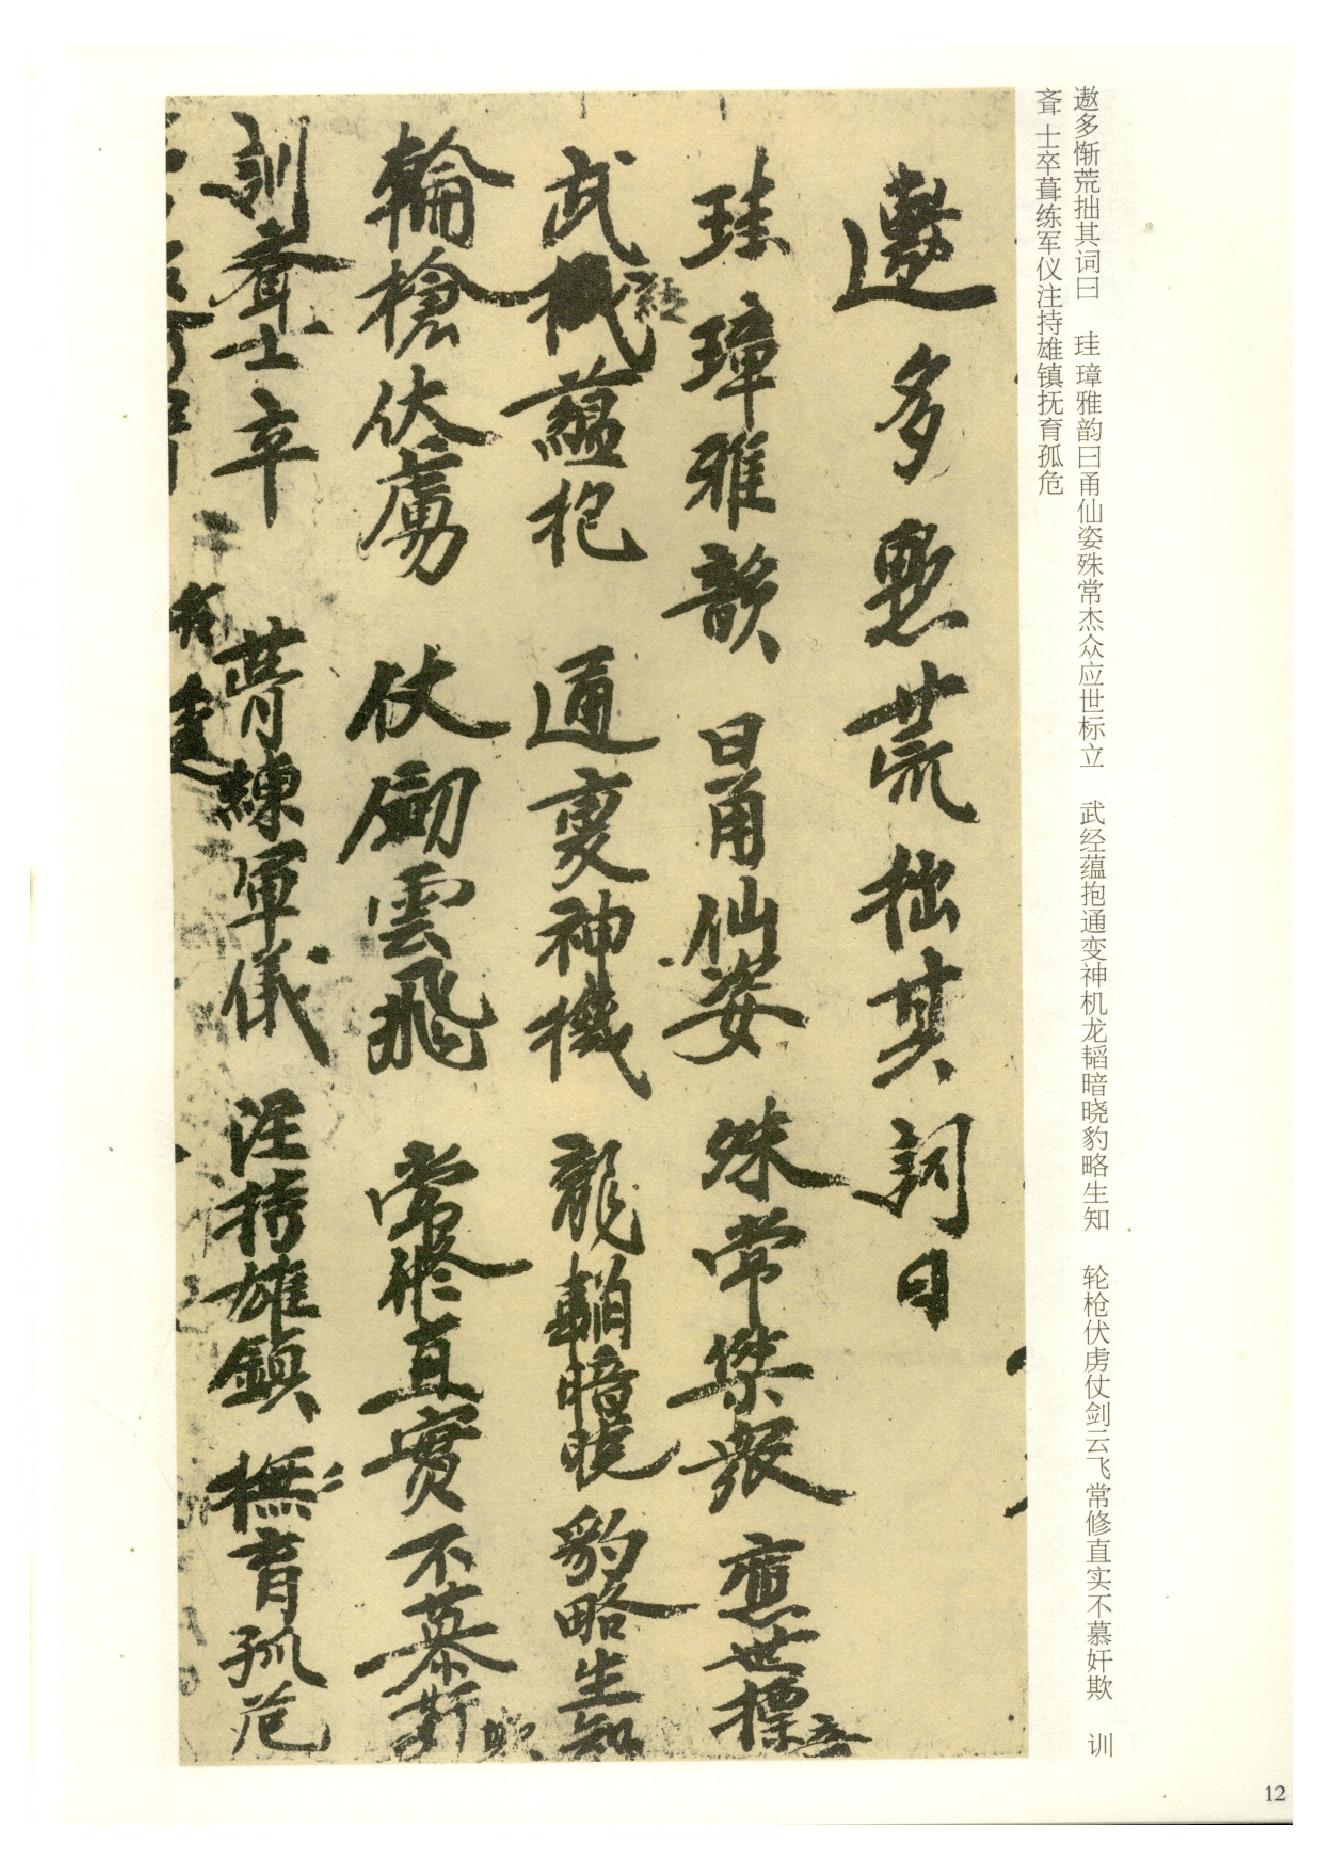 遨多惭荒拙其词曰　珪璋雅韵曰甬仙姿殊常杰众应世标立　武经蕴抱通变神机龙韬暗晓豹略生知　轮枪伏虏仗剑云飞常修直实不慕奸欺　训
斉士卒葺练军仪注持雄镇抚育孤危
多慙荒拙其詞曰
珪璋雅韻 曰甬仙姿 殊常傑衆 應世標立
武 經 蘊抱 通變神機 龍韜暗曉 豹略生知
輪槍伏虜 仗劒雲飛 常修直實不慕
訓士卒 葺練軍儀 注持雄鎮 撫育孤危
12